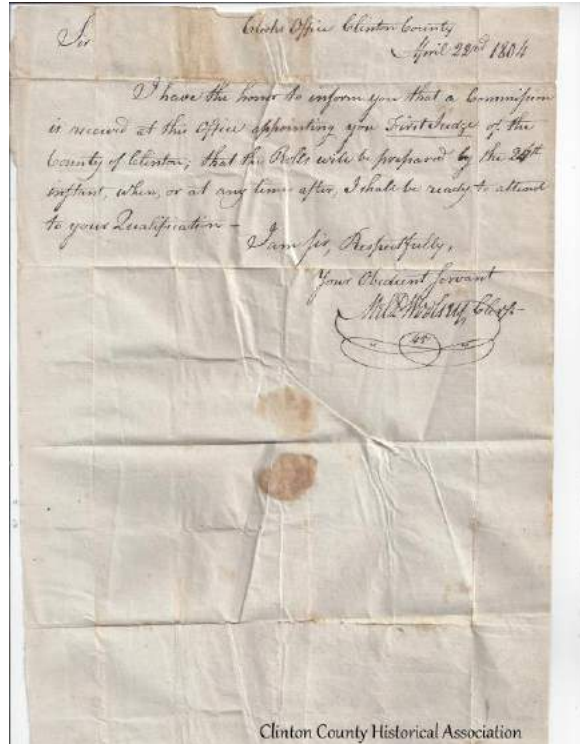 Clerks Office Clinton County
Sir April 22nd 1804
I have the honor to inform you that a Commission
is received at this Office appointing you First Judge of the
County of Clinton; that the Rolls will be prepared by the
instant, when, or at any time after, I shall be ready to attend
to your Qualification –
I am Sir, Respectfully,
Your Obedient Servant
Melr. Woolsey, Clerk
Clinton County Historical Association